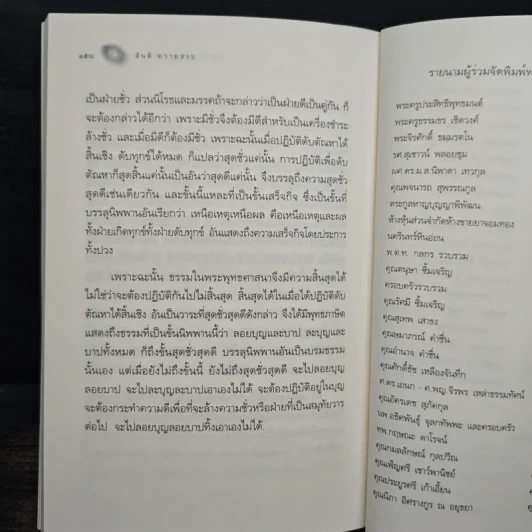 ๑๕๘ สันติ ความสงบ
เป็นฝ่ายชั่ว ส่วนนิโรธและมรรคถ้าจะกล่าวว่าเป็นฝ่ายดีเป็นคู่กัน ก็
จะต้องกล่าวได้อีกว่า เพราะมีชั่วจึงต้องมีดีสำหรับเป็นเครื่องชำระ
ล้างชั่ว และเมื่อมีดีก็ต้องมีชั่ว เพราะฉะนั้นเมื่อปฏิบัติดับตัณหาได้
สิ้นเชิง ดับทุกข์ได้หมด ก็แปลว่าสุดชั่วแค่นั้น การปฏิบัติเพื่อดับ
ตัณหาก็สุดสิ้นแค่นั้นเป็นอันว่าสุดดีแค่นั้น จึงบรรลุถึงความสุดชั่ว
สุดดีเช่นเดียวกัน และขั้นนี้แหละที่เป็นขั้นเสร็จกิจ ซึ่งเป็นขั้นที่
บรรลุนิพพานอันเรียกว่า เหนือเหตุเหนือผล คือเหนือเหตุและผล
ทั้งฝ่ายเกิดทุกข์ทั้งฝ่ายดับทุกข์ อันแสดงถึงความเสร็จกิจโดยประการ
ทั้งปวง
เพราะฉะนั้น ธรรมในพระพุทธศาสนาจึงมีความสิ้นสุดได้
ไม่ใช่ว่าจะต้องปฏิบัติกันไปไม่สิ้นสุด สิ้นสุดได้ในเมื่อได้ปฏิบัติดับ
ตัณหาได้สิ้นเชิง อันเป็นวาระที่สุดชั่วสุดดีดังกล่าว จึงได้มีพุทธภาษิต
แสดงถึงธรรมที่เป็นขั้นนิพพานนี้ว่า ลอยบุญและบาป ละบุญและ
บาปทั้งหมด ก็ถึงขั้นสุดชั่วสุดดี บรรลุนิพพานอันเป็นบรมธรรม
นั้นเอง แต่เมื่อยังไม่ถึงขั้นนี้ ยังไม่ถึงสุดชั่วสุดดี จะไปลอยบุญ
ลอยบาป จะไปละบุญละบาปเอาเองไม่ได้ จะต้องปฏิบัติอยู่ในบุญ
จะต้องกระทำความดีเพื่อที่จะล้างความชั่วหรือฝ่ายที่เป็นสมุทัยวาร
ต่อไป จะไปลอยบุญลอยบาปทิ้งเอาเองไม่ได้.
รายนามผู้ร่วมจัดพิมพ์
พระครูประสิทธิพุทธมนต์
พระครูธรรมธร เชิดวงศ์
พระจิรศักดิ์ ธมฺมรตโน
รศ.สุเชาวน์ พลอยชุม
ผศ.ดร.ม.ล.นิพาดา เทวกุล
คุณพจนารถ สุพรรณกูล
ตระกูลหาญบุญญาพิพัฒน์
ห้างหุ้นส่วนจำกัดห้างขายยาจอมทอง
นครินทร์หินอ่อน
พ.ต.ท. กลกร รวบรวม
คุณดนุษา ซิ้มเจริญ
ครอบครัวรวบรวม
คุณรัศมี ซิ้มเจริญ
คุณสุเทพ เสาธง
คุณษมาภรณ์ คำชื่น
คุณอำนาจ คำชื่น
คุณศักดิ์ชัย เหลืองจันทึก
ศ.ดร.เอนก - ศ.พญ.จีรพร เหล่าธรรมทัศน์
คุณอัครเดช สุภัคกุล
นพ.อชิตพันธุ์ จุลกทัพพะ และครอบครัว
ทพ.กฤษณะ ดาโรจน์
คุณกมลลักษณ์ กุลปวีณ
คุณเพ็ญศรี เชาว์พานิชย์
คุณประยูรศรี เก้าเอี้ยน
คุณนิภา อิศรางกูร ณ อยุธยา